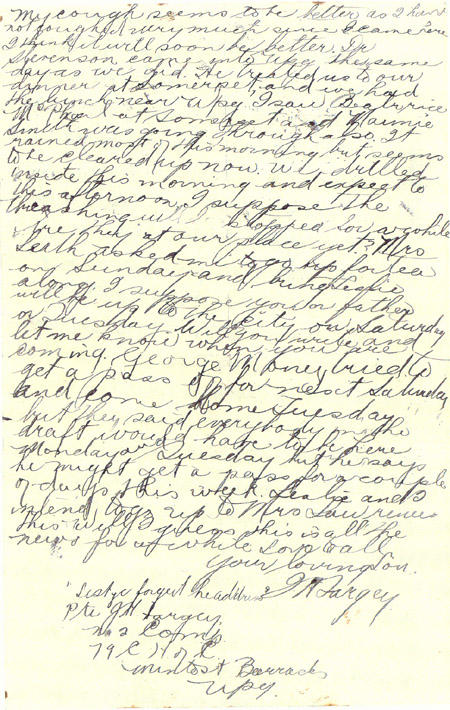 My cough seems to be better as I have
not coughed very much since I came here
I think it will soon be better. Mr
Stevenson came into Wpg the same
day as we did. He treated us to our
dinner at Somerset, and we had
the lunch near Wpg. I saw Beatrice
at Somerset and Mamie
Smith was going through also. It
rained most of this morning but seems
to be cleared up now. We drilled
inside this morning and expect to
this afternoon. I suppose the
threshing will be stopped for a while
at our place yet? Mrs
asked me to go up for tea
on Sunday and bring Leslie
along. I suppose you or father
will be up to the city on Saturday
or Tuesday. Will you write and
let me know when you are
coming. George Money tried to
get a pass for next Saturday
and come home Tuesday
but they said everybody on the
draft would have to be here
Monday & Tuesday but he says
he might get a pass for a couple
of days this week. Leslie and I
intend to go up to Mrs Lawrence
this week. I guess this is all the
news for a while Love to all
Your loving Son.
J H Fargey
forget the address
Pte J H Fargey
No 2 Comp
79 C H of C
Minto St Barracks
Wpg.